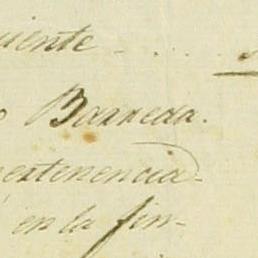 uiente
o Barreda.
ertenencia
en la fin-